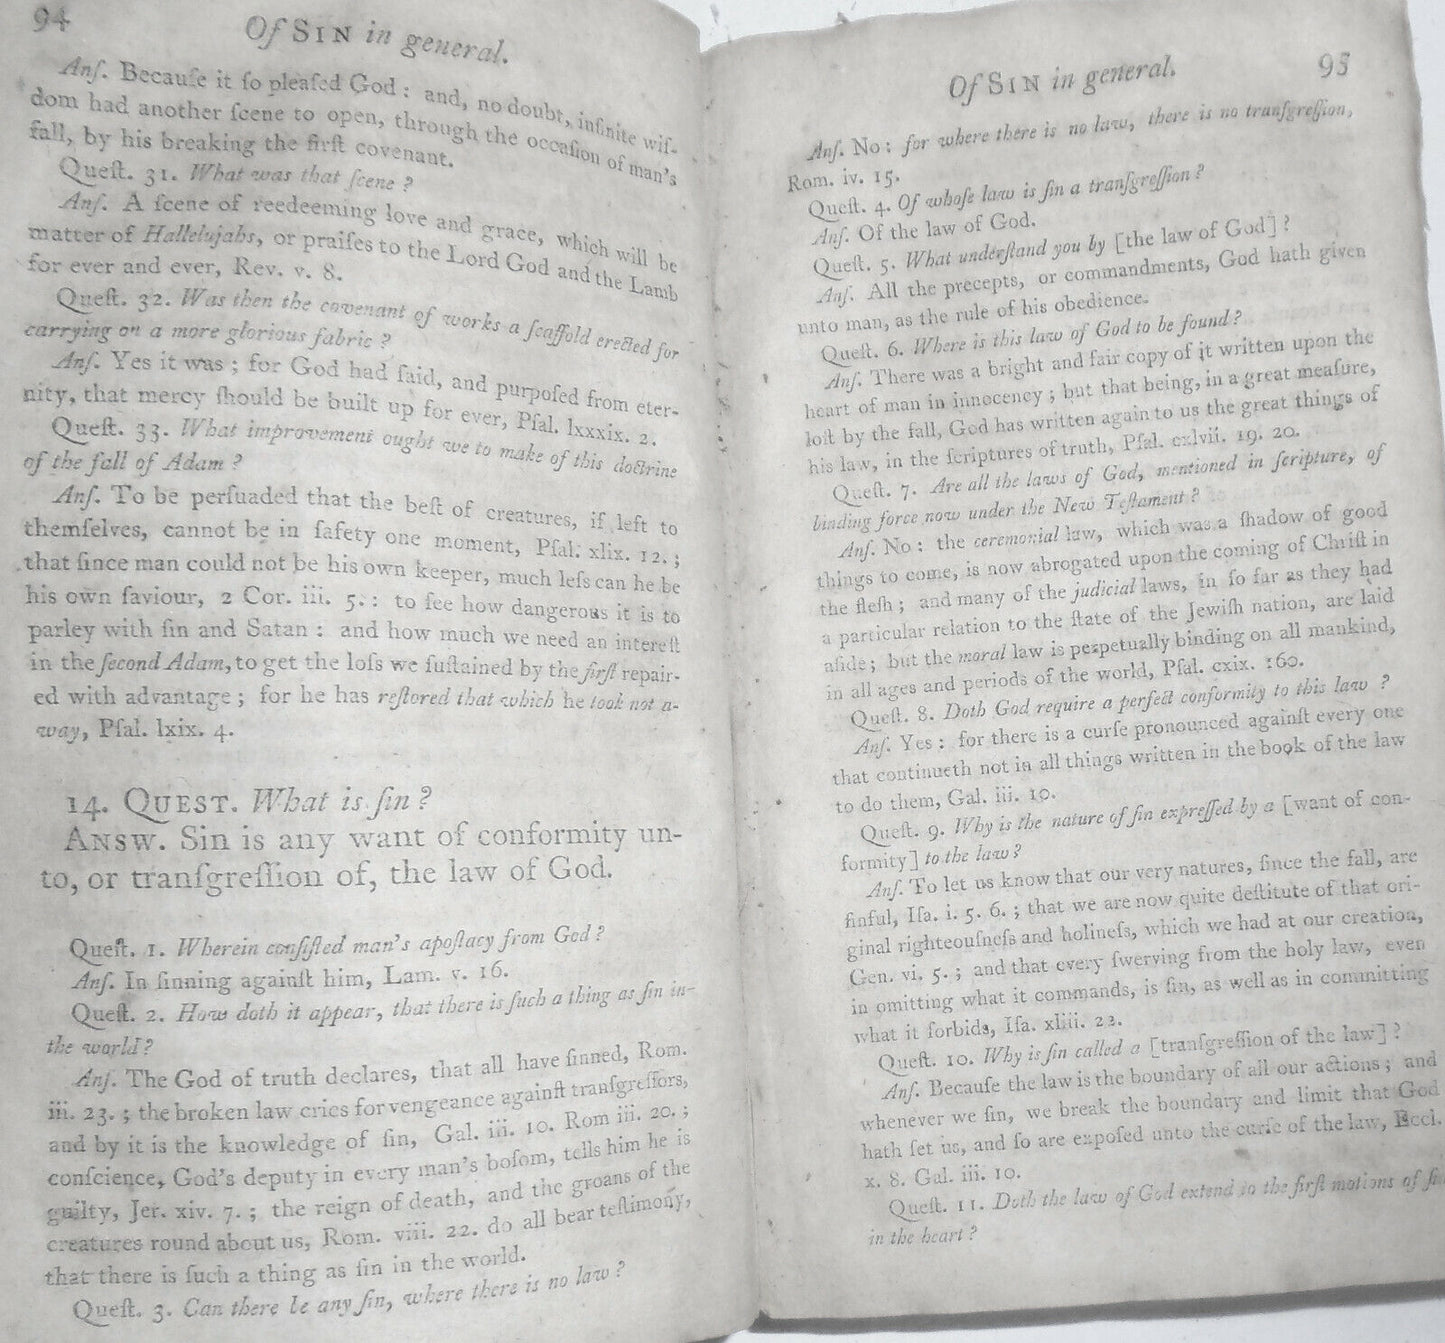 94
Of SIN in general.
Anſ. Becauſe it ſo pleaſed God: and, no doubt, infinite wiſ-
dom had another ſcene to open, through the occaſion of man's
fall, by his breaking the firſt covenant.
Queſt. 31. What was that ſcene?
Anſ. A ſcene of reedeeming love and grace, which will be
matter of Hallelujahs, or praiſes to the Lord God and the Lamb
for ever and ever, Rev. v. 8.
Queſt. 32. Was then the covenant of works a ſcaffold erected for
carrying on a more glorious fabric?
Anſ. Yes it was; for God had ſaid, and purpoſed from eter-
nity, that mercy ſhould be built up for ever, Pſal. lxxxix. 2.
Queſt. 33. What improvement ought we to make of this doctrine
of the fall of Adam?
Anſ. To be perſuaded that the beſt of creatures, if left to
themſelves, cannot be in ſafety one moment, Pſal. xlix. 12.;
that ſince man could not be his own keeper, much leſs can he be
his own ſaviour, 2 Cor. iii. 5.: to ſee how dangerous it is to
parley with ſin and Satan: and how much we need an intereſt
in the ſecond Adam, to get the loſs we ſuſtained by the firſt repair-
ed with advantage; for he has reſtored that which he took not a-
way, Pſal. lxix. 4.
14. QUEST. What is ſin?
ANSW. Sin is any want of conformity un-
to, or tranſgreſſion of, the law of God.
Queſt. 1. Wherein conſiſted man's apoſtacy from God?
Anſ. In ſinning againſt him, Lam. v. 16.
Queſt. 2. How doth it appear, that there is ſuch a thing as ſin in-
the world?
Anſ. The God of truth declares, that all have ſinned, Rom.
iii. 23.; the broken law cries for vengeance againſt tranſgreſſors,
and by it is the knowledge of ſin, Gal. iii. 10. Rom iii. 20.;
conſcience, God's deputy in every man's boſom, tells him he is
guilty, Jer. xiv. 7.; the reign of death, and the groans of the
creatures round about us, Rom. viii. 22. do all bear teſtimony,
that there is ſuch a thing as ſin in the world.
Queſt. 3. Can there be any ſin, where there is no law?
Of SIN in general.
95
Anſ. No: for where there is no law, there is no tranſgreſſion,
Rom. iv. 15.
Queſt. 4. Of whoſe law is ſin a tranſgreſſion?
Anſ. Of the law of God.
Queſt. 5. What underſtand you by [the law of God]?
Anſ. All the precepts, or commandments, God hath given
unto man, as the rule of his obedience.
Queſt. 6. Where is this law of God to be found?
Anſ. There was a bright and fair copy of it written upon the
heart of man in innocency; but that being, in a great meaſure,
loſt by the fall, God has written again to us the great things of
his law, in the ſcriptures of truth, Pſal. cxlvii. 19. 20.
Queſt. 7. Are all the laws of God, mentioned in ſcripture, of
binding force now under the New Teſtament?
Anſ. No: the ceremonial law, which was a ſhadow of good
things to come, is now abrogated upon the coming of Chriſt in
the fleſh; and many of the judicial laws, in ſo far as they had
a particular relation to the ſtate of the Jewiſh nation, are laid
aſide; but the moral law is perpetually binding on all mankind,
in all ages and periods of the world, Pſal. cxix. 160.
Queſt. 8. Doth God require a perfect conformity to this law?
Anſ. Yes: for there is a curſe pronounced againſt every one
that continueth not in all things written in the book of the law
to do them, Gal. iii. 10.
Queſt. 9. Why is the nature of ſin expreſſed by a [want of con-
formity] to the law?
Anſ. To let us know that our very natures, ſince the fall, are
ſinful, Iſa. i. 5. 6.; that we are now quite deſtitute of that ori-
ginal righteouſneſs and holineſs, which we had at our creation,
Gen. vi. 5.; and that every ſwerving from the holy law, even
in omitting what it commands, is ſin, as well as in committing
what it forbids, Iſa. xliii. 23.
Queſt. 10. Why is ſin called a [tranſgreſſion of the law]?
Anſ. Becauſe the law is the boundary of all our actions; and
whenever we ſin, we break the boundary and limit that God
hath ſet us, and ſo are expoſed unto the curſe of the law, Eccl.
x. 8. Gal. iii. 10.
Queſt. 11. Doth the law of God extend to the firſt motions of ſin
in the heart?